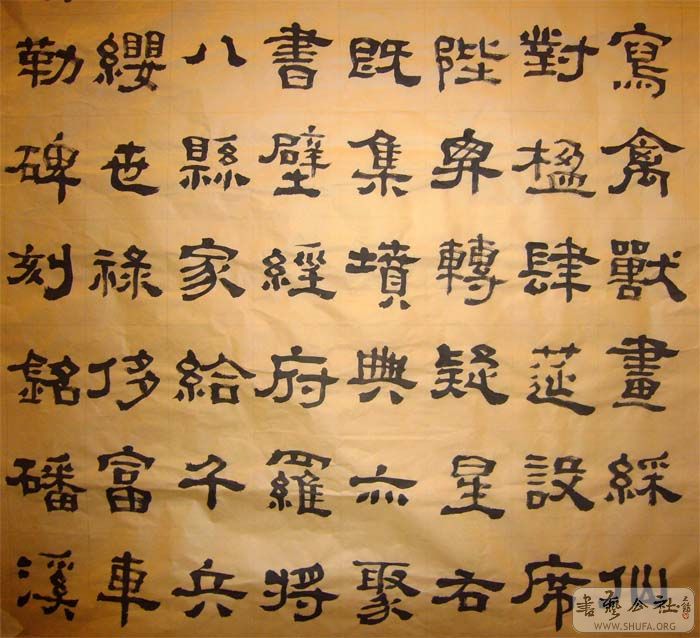 寫禽獸畫綵仙
對楹肆莚設席
陛弁轉疑星右
既集墳典亦聚
書壁經府羅將
八縣家給千兵
纓世祿侈富車
勒碑刻銘磻溪
書藝公社
WWW.SHUFA.ORG